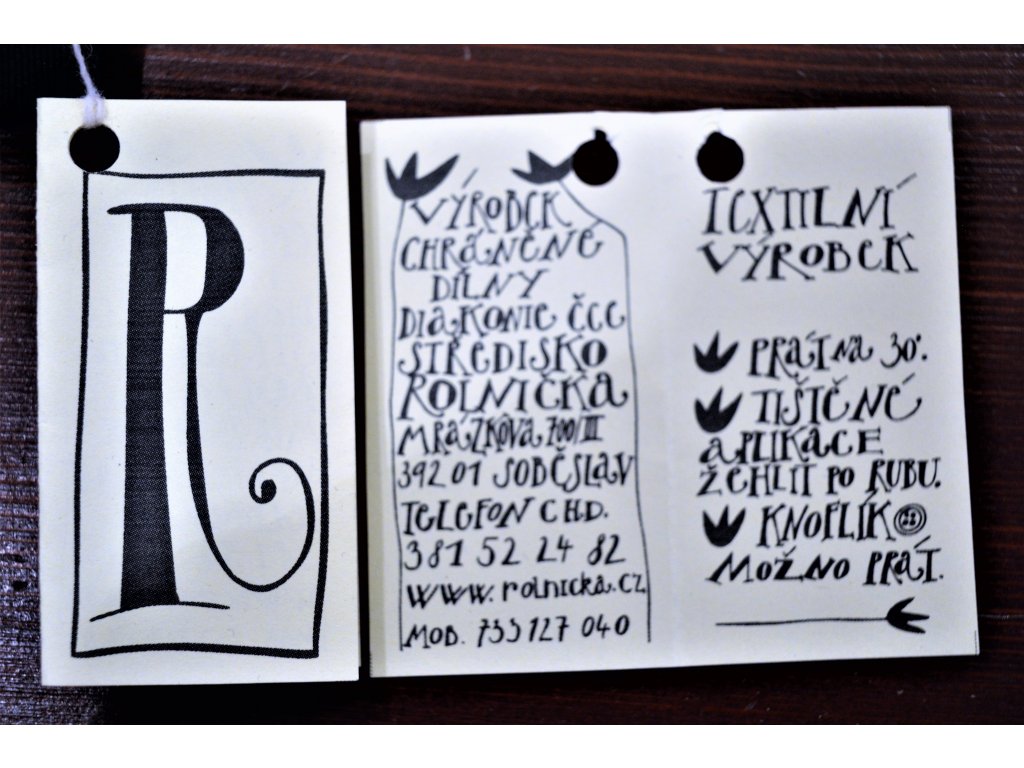 R
VÝROBEK
CHRÁNĚNÉ
DÍLNY
DIAKONIE ČCE
STŘEDISKO
ROLNIČKA
MRÁZKOVA 700/III
392 01 SOBĚSLAV
TELEFON CHD.
381 52 24 82
WWW.rolnicka.cz
MOB. 733 127 040
TEXTILNÍ
VÝROBEK
PRÁT NA 30°.
TIŠTĚNÉ
APLIKACE
ŽEHLIT PO RUBU.
KNOFLÍK
MOŽNO PRÁT.